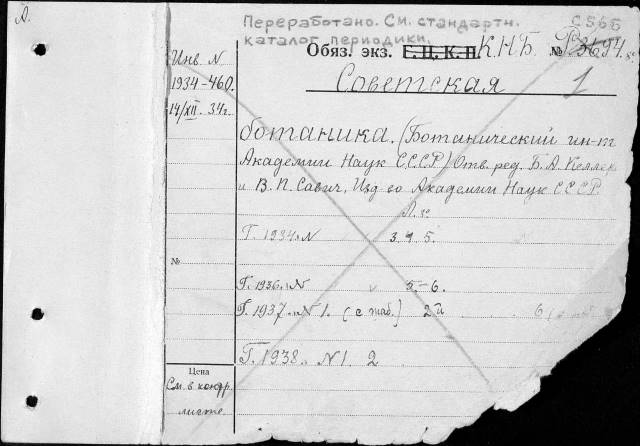 Д.
Переработано. См. стандартн.
каталог периодики.
С 565
Обяз. экз. Г.Ц.К.П. К.Н.Б. №
Советская
1
Инв N
1934-460.
14/XII. 34г.
ботаника. (Ботанический ин-т
Академии Наук СССР) Отв. ред. Б. А. Келлер
и В. П. Савич, Изд-во Академии Наук СССР.
Г. 1934. N 3. 4 5.
№
Г. 1936. N 5-6.
Г. 1937. N 1. (с таб.) 2й 6
Г. 1938. N 1. 2
Цена
См. в контр.
листе.